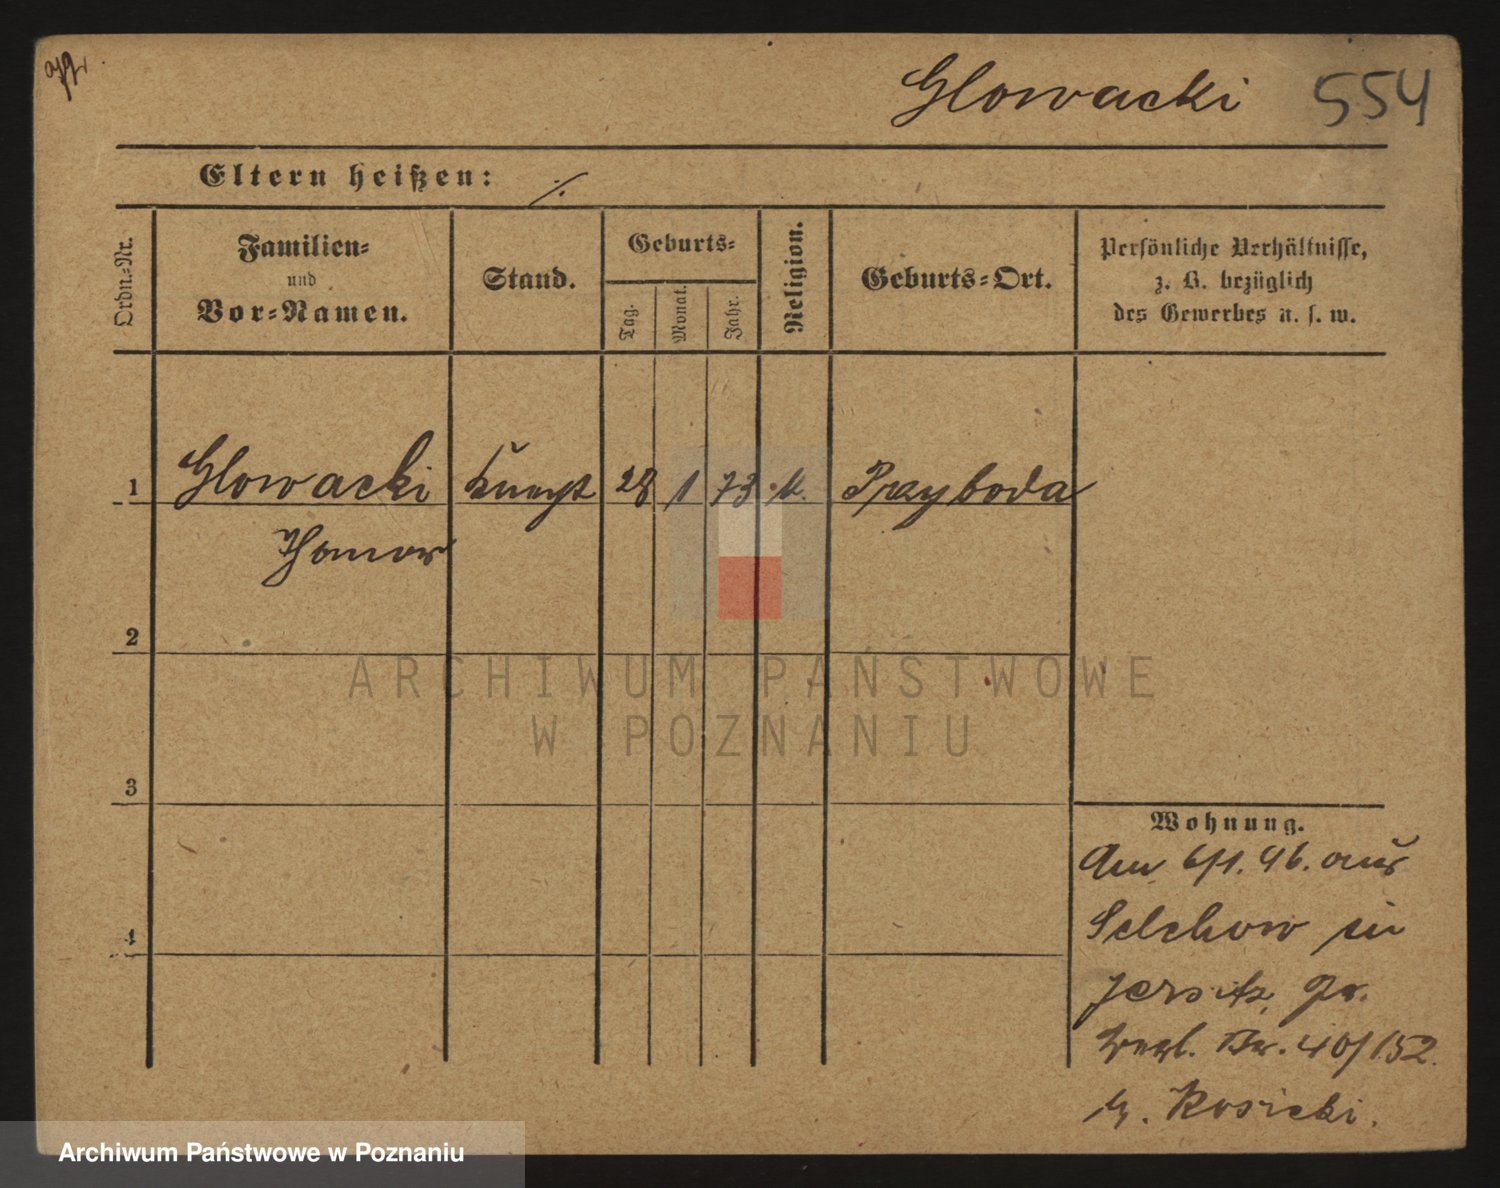 Glowacki 554
Eltern heißen: ./.
Ordn.-Nr.
Familien-
und
Vor-Namen.
Stand.
Geburts-
Tag.
Monat.
Jahr.
Religion.
Geburts-Ort.
Persönliche Verhältnisse,
z. B. bezüglich
des Gewerbes u. s. w.
1 Glowacki Knecht 28 1 73 k. Przyboda
Thomas
2
3
4
Wohnung.
Am 6/1. 96. aus
Selchow in
Jersitz, Gr.
Berl. Str. 40/152
b. Kosicki.
ARCHIWUM PAŃSTWOWE
W POZNANIU
Archiwum Państwowe w Poznaniu